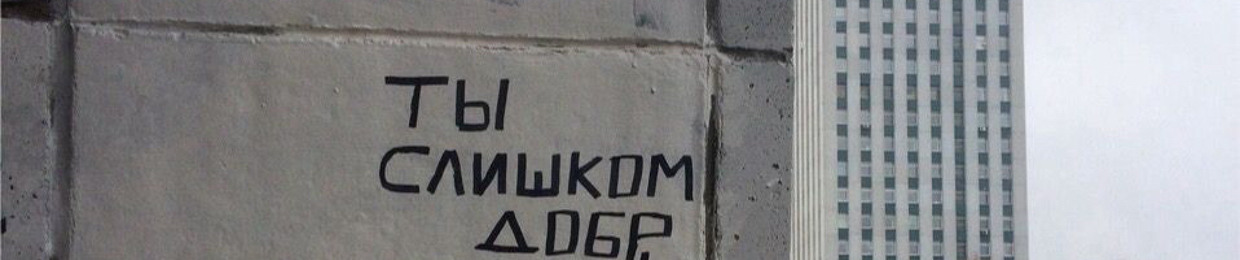 ТЫ
СЛИШКОМ
ДОБР,